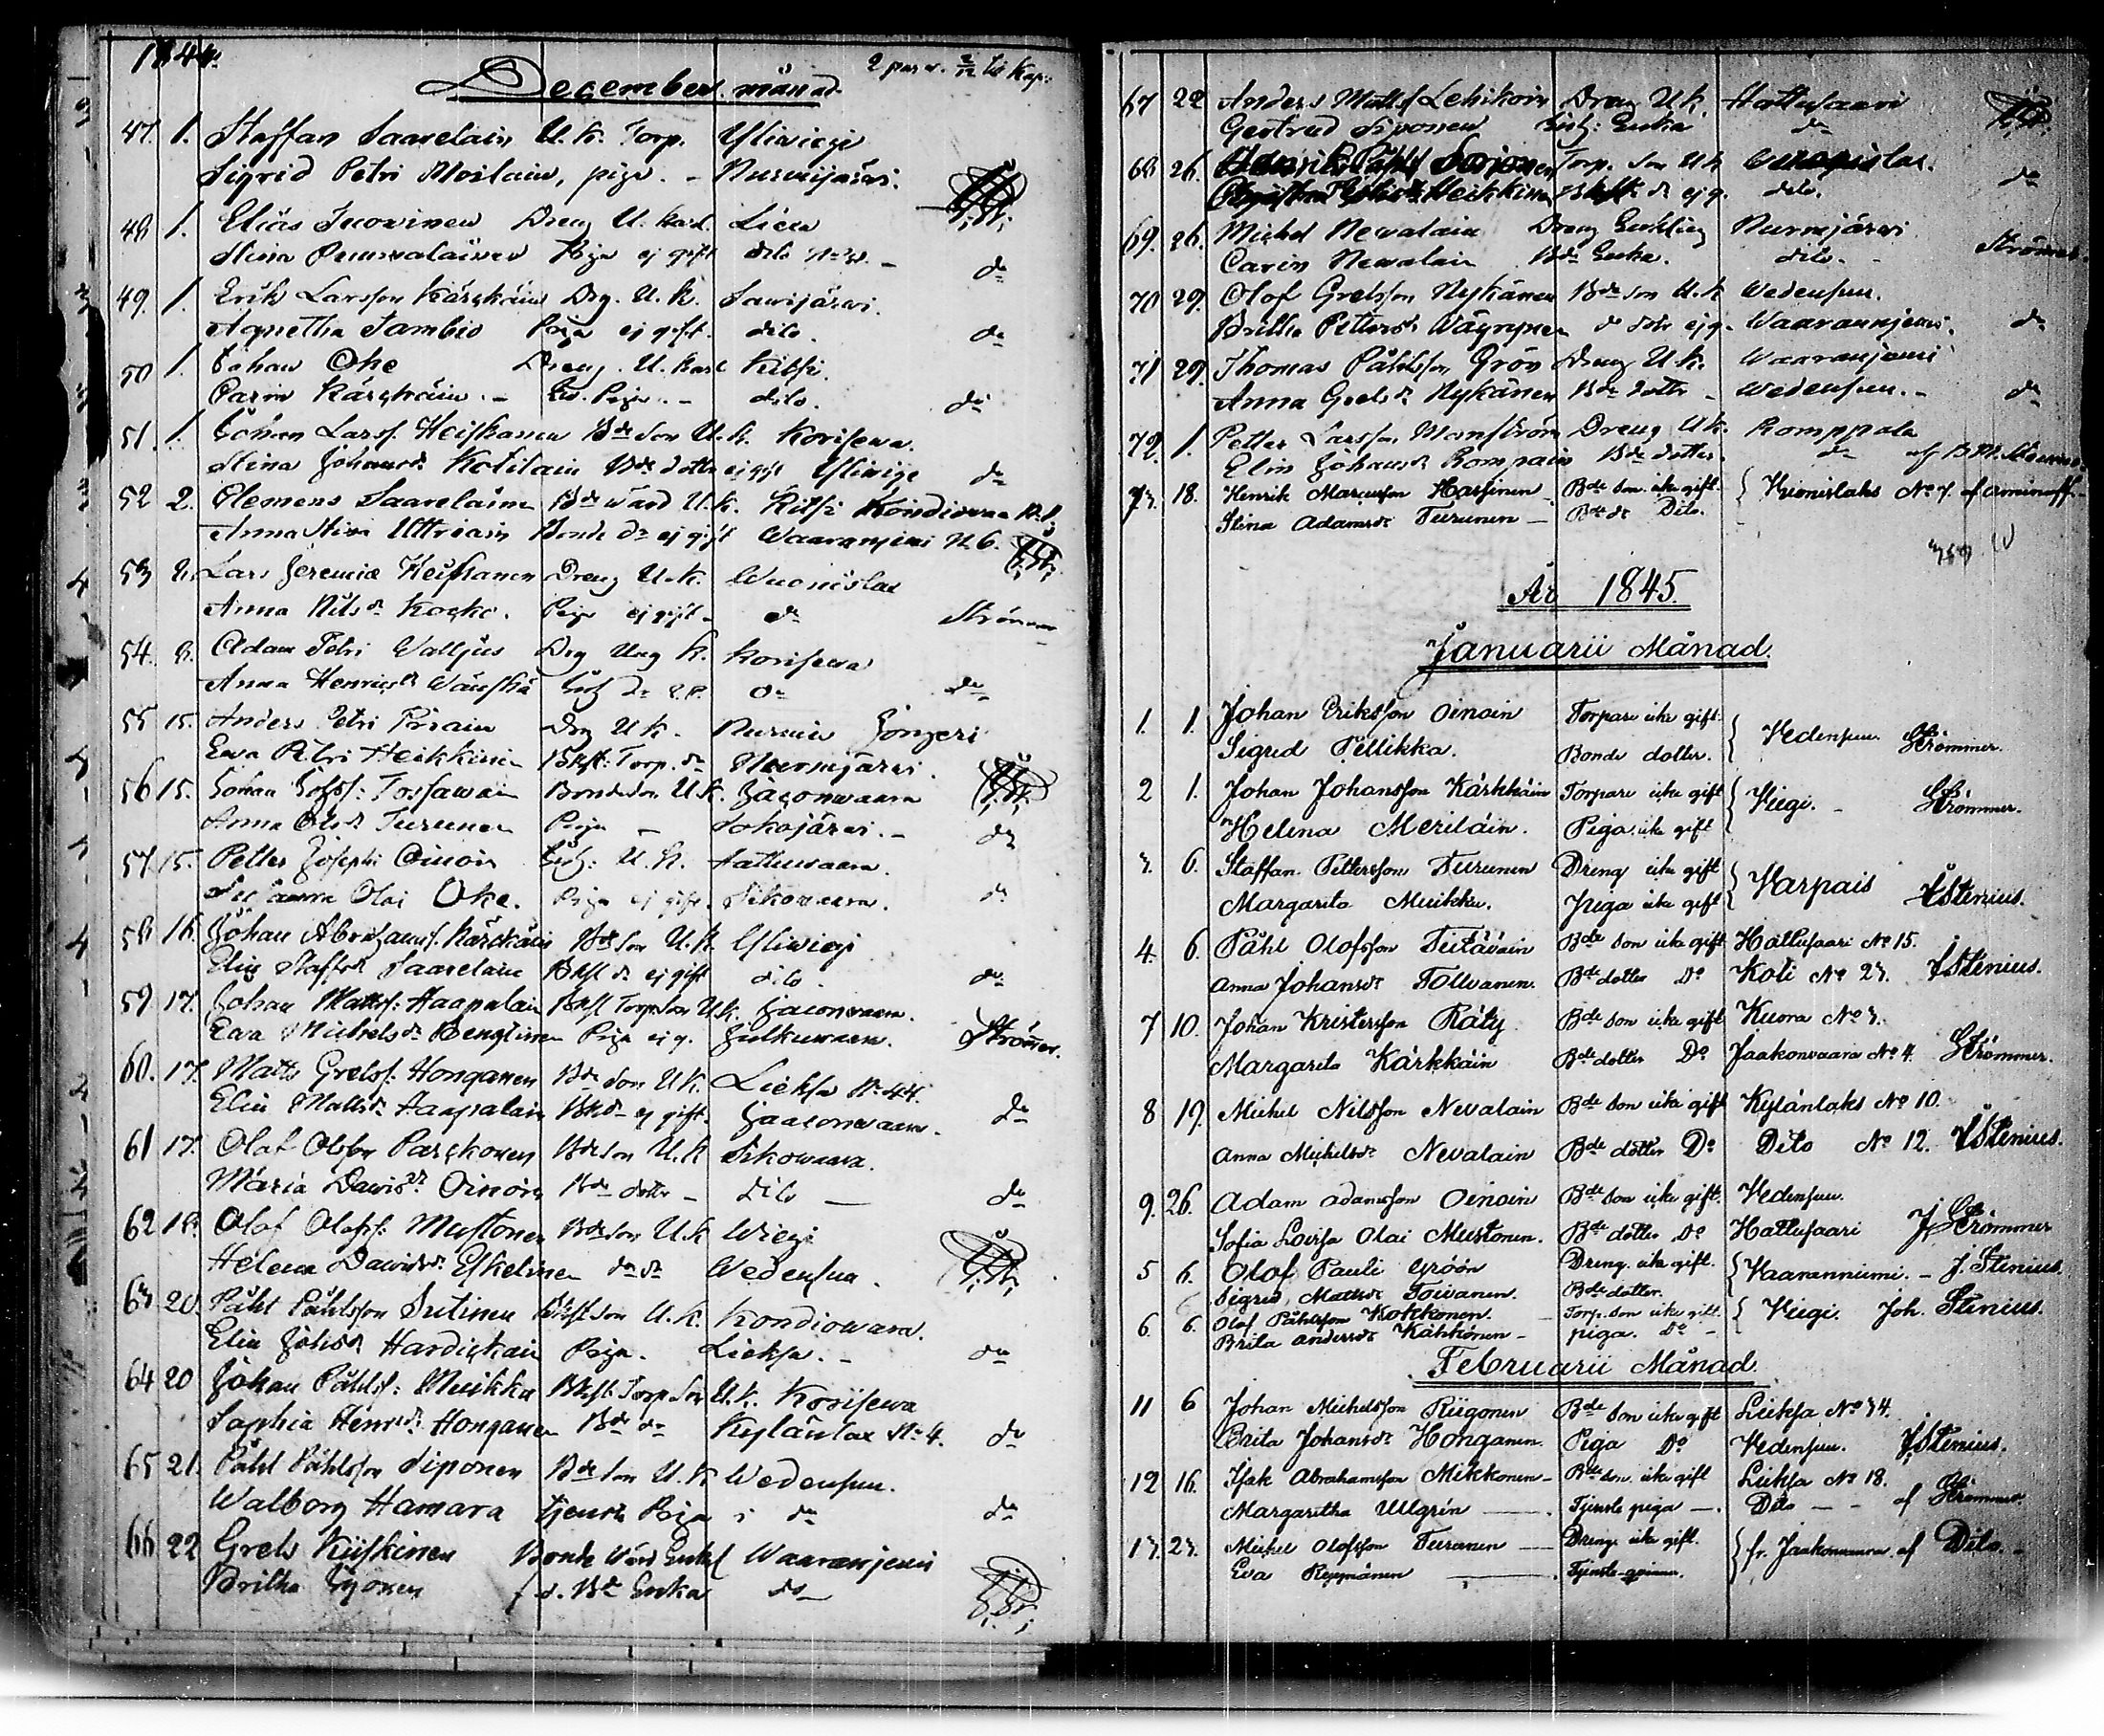 1844.
December månad
47. 1. Staffan Saarelain U. K. Torp. Yliwiegi
Sigrid Petri Moilain, piga. - Nurmijärvi.
48 1. Elias Turovinen Dreng U. Karl. Liexa
Stina Pennalainen Piga ej gift dito
49. 1. Erik Larsson Kärckäin Drg. U. K. Savijärvi.
Agnetha Sambio Piga ej gift. dito. do
50 1. Johan Oke Dreng. U. Karl Kitsi.
Carin Kärckäin. - Piga. - dito. do
51. 1. Johan Larss. Heiskanen Bde Son U. K. Korisewa.
Stina Johansdr Kotilain Bde dotter ej gift Yliwige do
52 2. Clemens Saarelainen Bde U. K. Kitsi
Anna Stina Uttriain Bonde dr ej gift Waaranjemi N 6.
53 Lars Jeremiæ Heiskanen Dreng U. K. Wuonislax
Anna Nils dr Kocko. Piga ej gift - do Strömmer
54. Adam Petri Walljus Drg Ung K. Korisewa
Anna Henrics dr Wänskä do do
55 15. Anders Petri Piirain Drg U K. Nurmis Jongeri
Ewa Petri Heikkinen Torp. dr Nurmijärvi.
56 15. Johan Tossawain Bonde Son. U. K. Jaconwaara
Anna Ols dr Turunen Piga - Sokojärvi. - do
57. 15. Petter Josephi Oinoin U. K. Hattuwaara.
Susanna Olai Oke. Piga ej gift. Sikowaara. do
58 16. Johan Abrahams. Kärckäin Bde Son U. K. Yliwiegi
Elin Staffs dr Saarelain dr ej gift dito. do
59. 17. Johan Mattss: Haapalain Torp. Son U. K. Jaconwaara.
Eva Michelsdr Penttinen Piga ej g. Julkuwaara. Strömer.
60. 17. Matts Grelss: Honganen Bde Son U K. Lieksa N: 44.
Elin Matts dr Haapalain ej gift. Jaaconwaara. do
61 17. Olof Olofsson Parckonen Bde Son U. K Sikowaara.
Maria Davids dr Oinoin Bde dotter - dito - do
62 18. Olof Olofss: Mustonen Bde Son U. K Wiegi
Helena Davids dr Eskelinen do dr Wedensuu.
63 20. Påhl Påhlsson Sutinen Son U. K. Kondiowara.
Elin Johs dr Hardickain Piga. Lieksa. - do
64 20 Johan Påhlss: Muikku Torp. Son U. K. Korisewa
Sophia Henrs dr Honganen Bde dr Kylänlax N: 4. do
65 21. Påhl Påhlsson Siponen Bde Son U. K Wedensuu.
Walborg Hamara tjenste Piga i do do
66 22 Grels Kiiskinen Bonde Enkl Waaranjemi
Britha Enka do
67 22 Anders Matts. Lehikoin Dreng U K. Hattusaari
Gertrud Siponen Enka do
68 26. Torp. Son U K Wuonislax.
Heikkinen dr ej g. dito. do
69. 26. Michel Nevalain Dreng Enkling Nurmjärvi
Carin Nevalain Bde Enka. dito. - Strömer
70 29. Olof Grelsson Nykänen Bde Son U K Wedensuu.
Britha Petters dr Wäyrynen dotr ej g. Waaranjemi. do
71 29. Thomas Påhlsson Grön Dreng U K. Waaranjemi
Anna Grels dr Nykänen Bde dotter - Wedensuu. - do
72. 1. Petter Larsson Manström Dreng U K. Romppala
Elin Johans dr Rompain Bde dotter. do
73. 18. Henrik Marcusson Hassinen Bde Son icke gift. Wuonislaks No 7. af Aminoff.
Stina Adamsdr Turunen - Bde dr Dito.
År 1845.
Januarii Månad.
1. 1. Johan Eriksson Oinoin Torpare icke gift. Vedensuu. Strömmer.
Sigrid Pellikka. Bonde dotter.
2 1. Johan Johansson Kärkkäin Torpare icke gift Viegi. - Strömmer.
Helena Meriläin. Piga icke gift
3. 6. Staffan Pettersson Turunen Dreng icke gift Varpais J Stenius.
Margarita Muikku. Piga icke gift
4. 6. Påhl Olofsson Teitäväin Bde Son icke gift Hattusaari No 15.
Anna Johansdr Tolvanen. Bde dotter Do Koli No 23. J Stenius.
7 10. Johan Kristersson Räty Bde Son icke gift Kuora No 3.
Margarita Kärkkäin Bde dotter Do Jaakonvaara No 4. Strömmer.
8 19. Michel Nilsson Nevalain Bde Son icke gift Kylänlaks No 10.
Anna Michelsdr Nevalain Bde dotter Do Dito No 12. J Stenius.
9. 26. Adam Adamsson Oinoin Bde Son icke gift. Vedensuu.
Sofia Lovisa Olai Mustonen. Bde dotter Do Hattusaari J Strömmer
5 6. Olof Pauli Gröön Dreng. icke gift. Vaaranniemi. - J. Stenius.
Sigrid Mattsdr Toivanen. Bde dotter.
6. 6. Olof Påhlsson Kokkonen. Torp. Son icke gift. Viegi. Joh. Stenius.
Brita Andersdr Kähkönen - piga. Do -
Februarii Månad.
11 6 Johan Michelsson Riigonen Bde Son icke gift Lieksa No 34.
Brita Johansdr Honganen. Piga Do Vedensuu. J Stenius.
12 16. Isak Abrahamsson Mikkonen - Bde Son. icke gift Lieksa No 18.
Margaritha Ullgrén - Tjenste piga -. Dito - - af Strömmer.
13. 23. Michel Olofsson Turunen - Dreng. icke gift. fr. Jaakonvaara. af Dito. -
Eva Reymänen - Tjenste-qvinna.